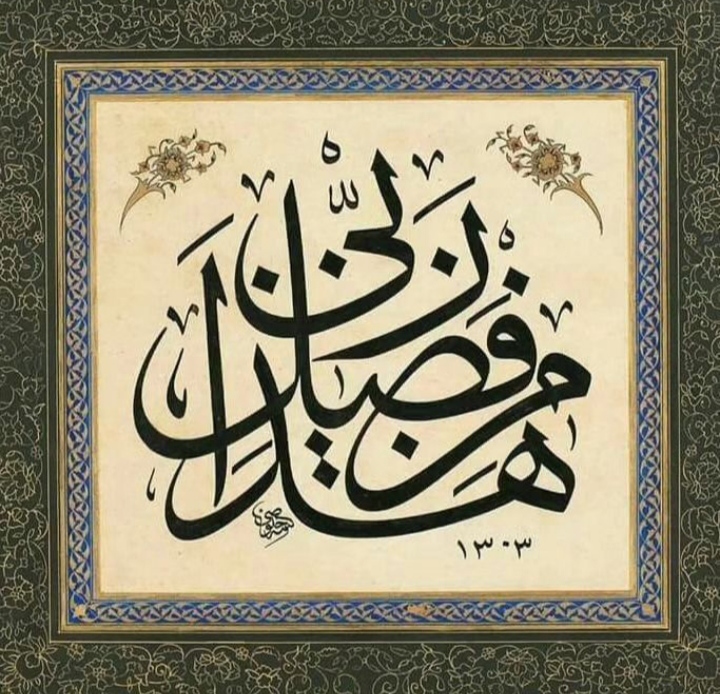 هذا من فضل ربي
١٣٠٣